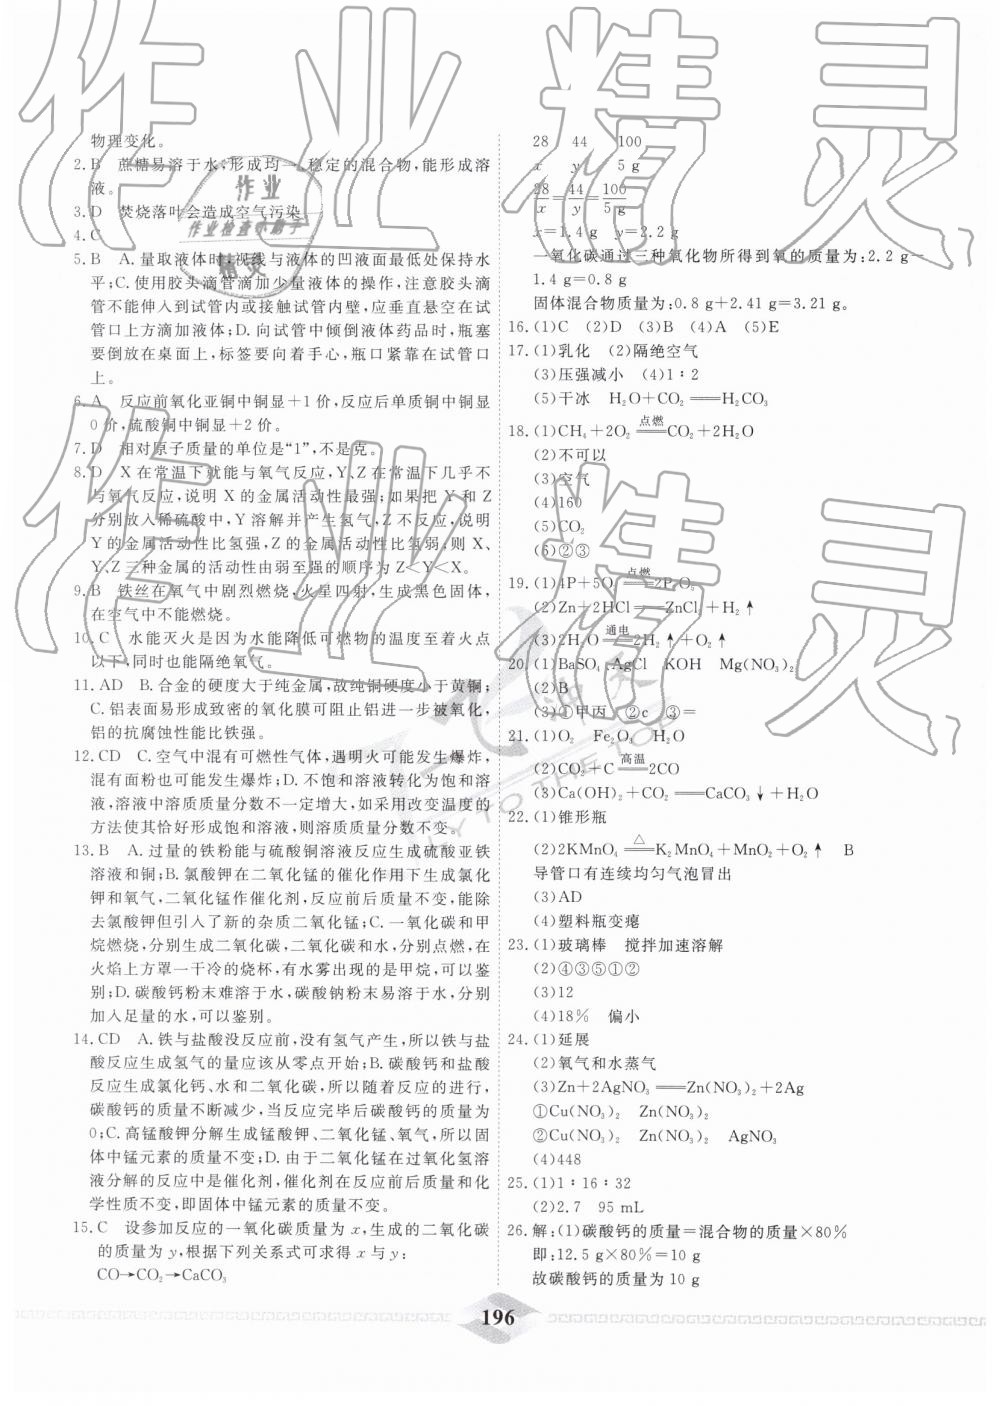 物理变化。
2. B 蔗糖易溶于水,形成均一、稳定的混合物,能形成溶
液。
3. D 焚烧落叶会造成空气污染。
4. C
5. B A. 量取液体时,视线与液体的凹液面最低处保持水
平;C. 使用胶头滴管滴加少量液体的操作,注意胶头滴
管不能伸入到试管内或接触试管内壁,应垂直悬空在试
管口上方滴加液体;D. 向试管中倾倒液体药品时,瓶塞
要倒放在桌面上,标签要向着手心,瓶口紧靠在试管口
上。
6. A 反应前氧化亚铜中铜显+1价,反应后单质铜中铜显
0价,硫酸铜中铜显+2价。
7. D 相对原子质量的单位是“1”,不是克。
8. D X在常温下就能与氧气反应,Y、Z在常温下几乎不
与氧气反应,说明X的金属活动性最强;如果把Y和Z
分别放入稀硫酸中,Y溶解并产生氢气,Z不反应,说明
Y的金属活动性比氢强,Z的金属活动性比氢弱;则X、
Y、Z三种金属的活动性由弱至强的顺序为Z<Y<X。
9. B 铁丝在氧气中剧烈燃烧,火星四射,生成黑色固体,
在空气中不能燃烧。
10. C 水能灭火是因为水能降低可燃物的温度至着火点
以下,同时也能隔绝氧气。
11. AD B. 合金的硬度大于纯金属,故纯铜硬度小于黄铜;
C. 铝表面易形成致密的氧化膜可阻止铝进一步被氧化,
铝的抗腐蚀性能比铁强。
12. CD C. 空气中混有可燃性气体,遇明火可能发生爆炸,
混有面粉也可能发生爆炸;D. 不饱和溶液转化为饱和溶
液,溶液中溶质质量分数不一定增大,如采用改变温度的
方法使其恰好形成饱和溶液,则溶质质量分数不变。
13. B A. 过量的铁粉能与硫酸铜溶液反应生成硫酸亚铁
溶液和铜;B. 氯酸钾在二氧化锰的催化作用下生成氯化
钾和氧气,二氧化锰作催化剂,反应前后质量不变,能除
去氯酸钾但引入了新的杂质二氧化锰;C. 一氧化碳和甲
烷燃烧,分别生成二氧化碳,二氧化碳和水,分别点燃,在
火焰上方罩一干冷的烧杯,有水雾出现的是甲烷,可以鉴
别;D. 碳酸钙粉末难溶于水,碳酸钠粉末易溶于水,分别
加入足量的水,可以鉴别。
14. CD A. 铁与盐酸没反应前,没有氢气产生,所以铁与盐
酸反应生成氢气的量应该从零点开始;B. 碳酸钙和盐酸
反应生成氯化钙、水和二氧化碳,所以随着反应的进行,
碳酸钙的质量不断减少,当反应完毕后碳酸钙的质量为
0;C. 高锰酸钾分解生成锰酸钾、二氧化锰、氧气,所以固
体中锰元素的质量不变;D. 由于二氧化锰在过氧化氢溶
液分解的反应中是催化剂,催化剂在反应前后质量和化
学性质不变,即固体中锰元素的质量不变。
15. C 设参加反应的一氧化碳质量为x,生成的二氧化碳
的质量为y,根据下列关系式可求得x与y:
CO→CO₂→CaCO₃
28 44 100
x y 5 g
28/x=44/y=100/5 g
x=1.4 g y=2.2 g
一氧化碳通过三种氧化物所得到氧的质量为:2.2 g−
1.4 g=0.8 g
固体混合物质量为:0.8 g+2.41 g=3.21 g。
16. (1)C (2)D (3)B (4)A (5)E
17. (1)乳化 (2)隔绝空气
(3)压强减小 (4)1∶2
(5)干冰 H₂O+CO₂══H₂CO₃
18. (1)CH₄+2O₂ 点燃══ CO₂+2H₂O
(2)不可以
(3)空气
(4)160
(5)CO₂
(6)②③
19. (1)4P+5O₂ 点燃══ 2P₂O₅
(2)Zn+2HCl══ZnCl₂+H₂↑
(3)2H₂O 通电══ 2H₂↑+O₂↑
20. (1)BaSO₄ AgCl KOH Mg(NO₃)₂
(2)B
(3)①甲丙 ②c ③=
21. (1)O₂ Fe₂O₃ H₂O
(2)CO₂+C 高温══ 2CO
(3)Ca(OH)₂+CO₂══CaCO₃↓+H₂O
22. (1)锥形瓶
(2)2KMnO₄ △══ K₂MnO₄+MnO₂+O₂↑ B
导管口有连续均匀气泡冒出
(3)AD
(4)塑料瓶变瘪
23. (1)玻璃棒 搅拌加速溶解
(2)④③⑤①②
(3)12
(4)18% 偏小
24. (1)延展
(2)氧气和水蒸气
(3)Zn+2AgNO₃══Zn(NO₃)₂+2Ag
①Cu(NO₃)₂ Zn(NO₃)₂
②Cu(NO₃)₂ Zn(NO₃)₂ AgNO₃
(4)448
25. (1)1∶16∶32
(2)2.7 95 mL
26. 解:(1)碳酸钙的质量=混合物的质量×80%
即:12.5 g×80%=10 g
故碳酸钙的质量为10 g
196
作业精灵
作业精灵
作业
作业检查小助手
精灵